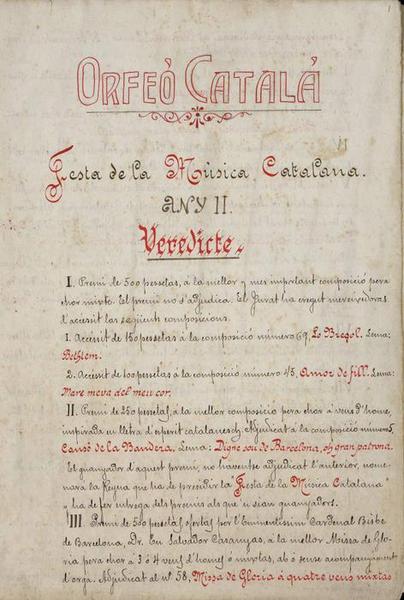 ORFEÓ CATALÁ
Festa de la Música Catalana.
ANY II.
Veredicte
I. Premi de 500 pessetas, á la mellor y mes important composició pera
chor mixto. El premi no s'adjudica. El Jurat ha cregut mereixedoras
d'accessit las següents composicions.
1. Accessit de 150 pessetas á la composició número 69, Lo Bregol. Lema:
Bethlem.
2. Accessit de 100 pessetas á la composició número 45, Amor de fill. Lema:
Mare meva del meu cor.
II. Premi de 250 pessetas, á la mellor composició pera chor á veus d'home,
inspirada en lletra d'esperit catalanesch. Adjudicat á la composició número 5,
Cansó de la Bandera. Lema: Digne sou de Barcelona, oh gran patrona.
El guanyador d'aquest premi, no haventse adjudicat l'anterior, nome-
nará la Reyna que ha de presidir la "Festa de la Música Catalana"
y ha de fer entrega dels premis als que 'n sian guanyadors.
III. Premi de 550 pessetas ofertas por l'Eminentíssim Cardenal Bisbe
de Barcelona, Dr. En Salvador Casanyas, á la mellor Missa de Glo-
ria pera chor á 3 ó 4 veus d'homes ó mixtas, ab ó sense acompanyament
d'orga. Adjudicat al nº 58, Missa de Gloria á quatre veus mixtas